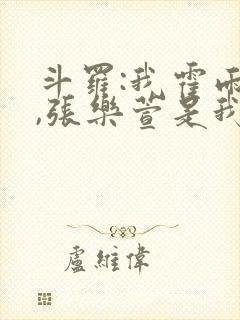 斗羅:我霍雨
,張樂萱是我
盧維偉